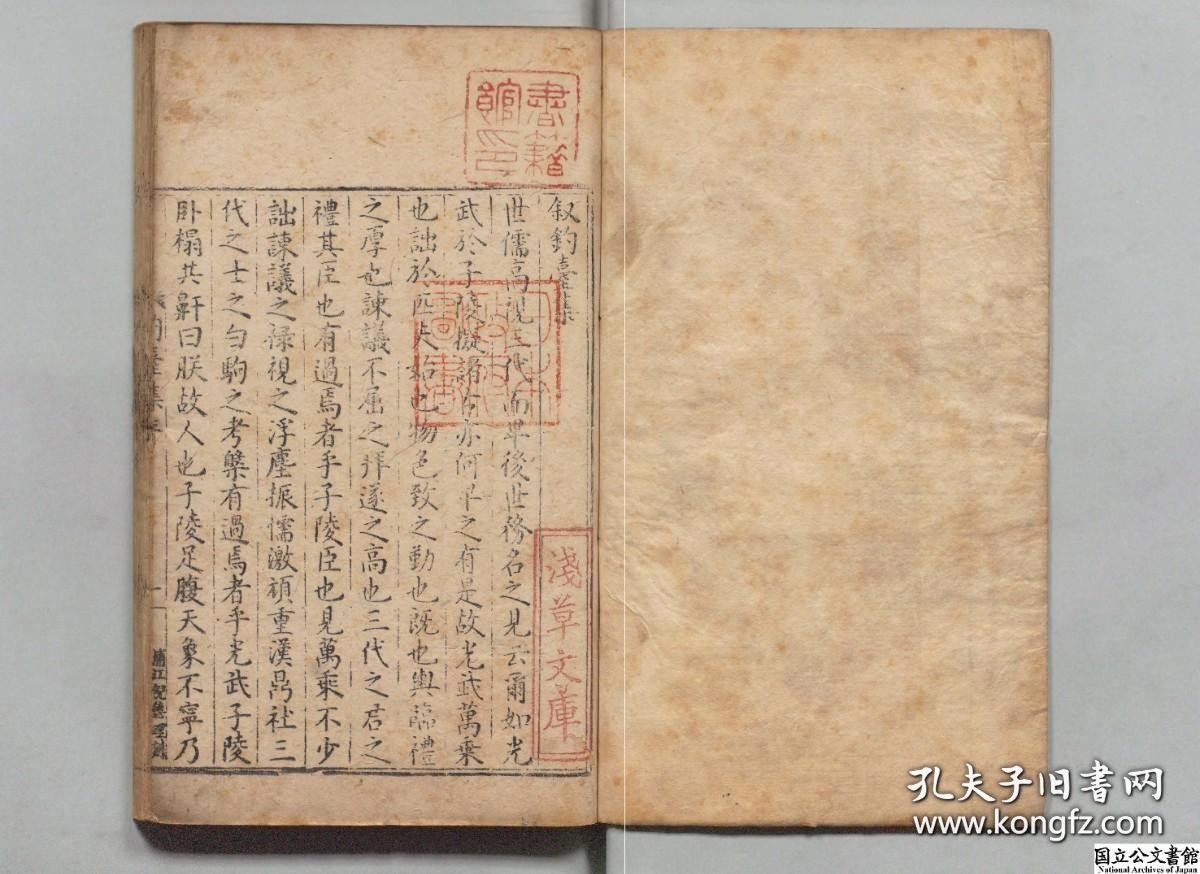 書籍館印
叙釣臺集
世儒高視三代而卑後世務名之見云爾如光
武於子陵擬諸古亦何卑之有是故光武萬乗
也詘於匹夫始也物色致之勤也既也輿臨禮
之厚也諫議不屈之拜遂之高也三代之君之
禮其臣也有過焉者乎子陵臣也見萬乘不少
詘諫議之祿視之浮塵振懦激頑重漢鼎社三
代之士之白駒之考槃有過焉者乎光武子陵
卧榻共鼾曰朕故人也子陵足腹天象不寧乃
釣臺集
淺草文庫
孔夫子旧书网
www.kongfz.com
国立公文書館
National Archives of Japan